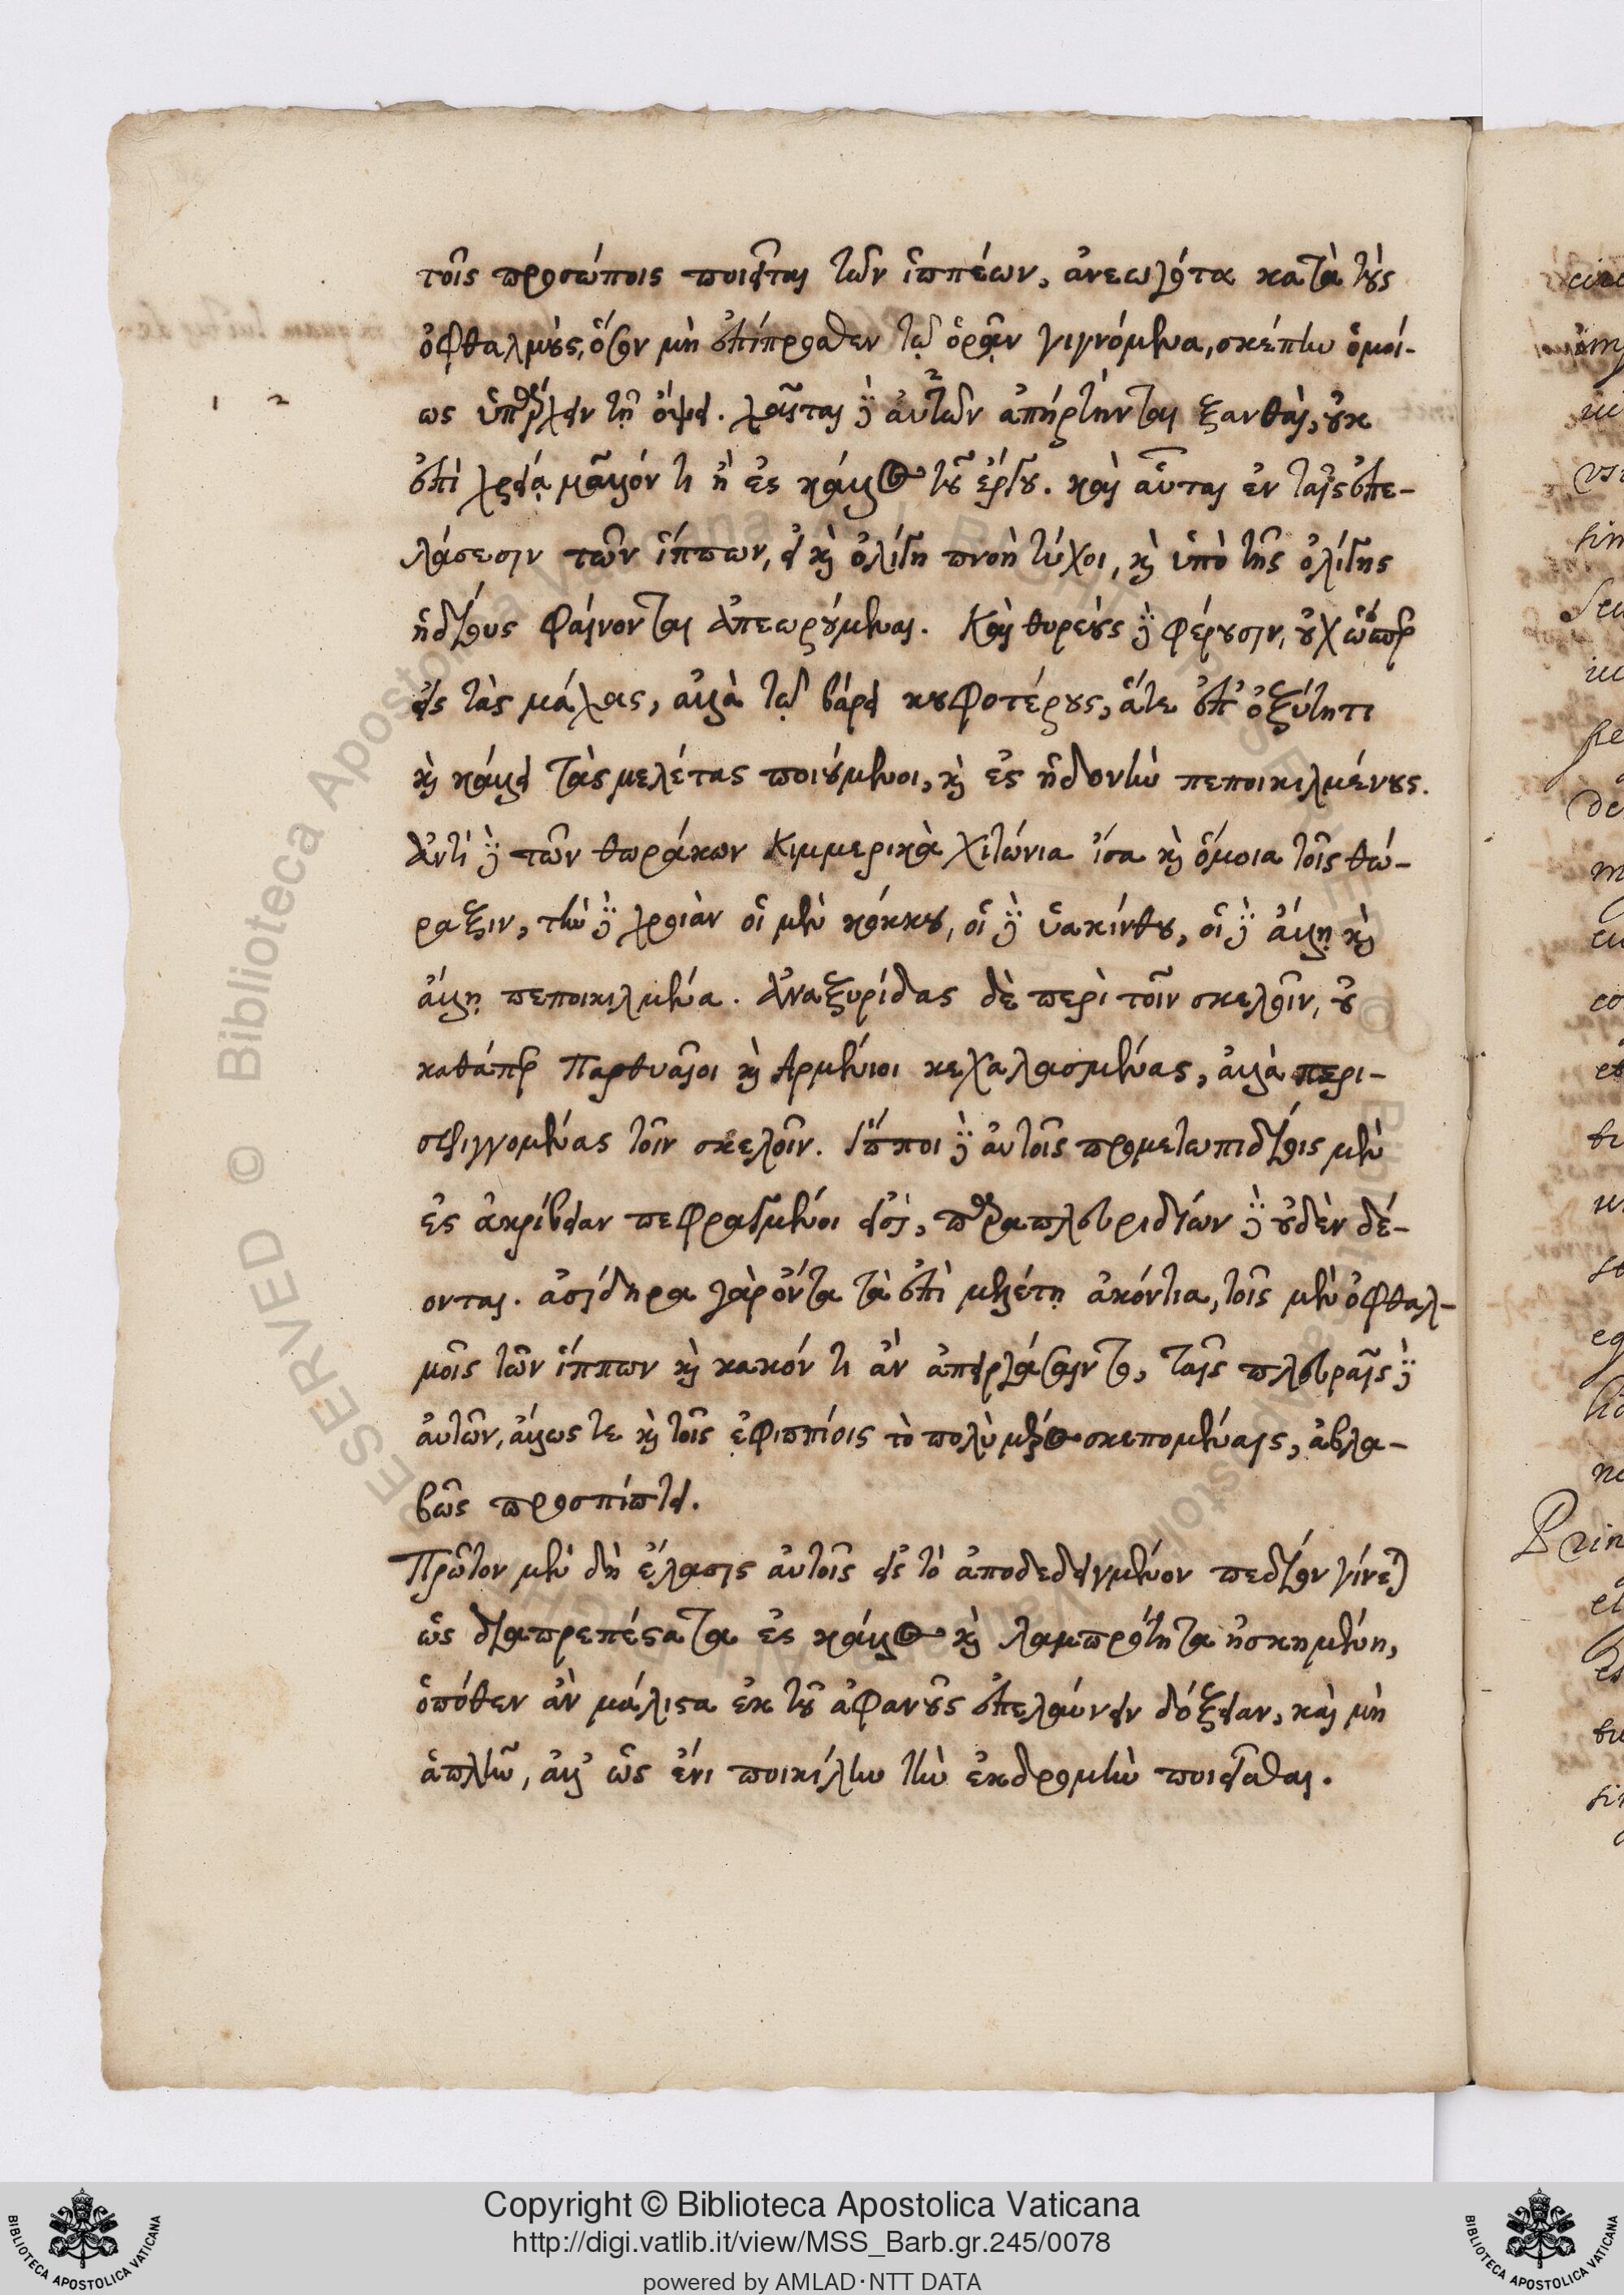 τοῖς προσώποις ποιεῖται τῶν ἱππέων, ἀνεωγότα κατὰ τοὺς
ὀφθαλμοὺς, ὅσον μὴ ἐπίπροσθεν τῷ ὁρᾷν γιγνόμενα, σκέπην ὁμοί-
1 2 ως ὑπάρχειν τῇ ὄψει. χαῖται δὲ αὐτῶν ἀπήρτηνται ξανθαὶ, οὐκ
ἐπὶ χρείᾳ μᾶλλόν τι ἢ ἐς κάλλος τοῦ ἔργου. καὶ αὗται ἐν ταῖς ἐπε-
λάσεσιν τῶν ἵππων, εἰ καὶ ὀλίγη πνοὴ τύχοι, καὶ ὑπὸ τῆς ὀλίγης
ἡδέως φαίνονται ἀπεωρούμεναι. Καὶ θυρεοὺς δὲ φέρουσιν, οὐχ ὥσπερ
εἰς τὰς μάχας, ἀλλὰ τῷ βάρει κουφοτέρους, ἅτε ἐπ' ὀξύτητι
καὶ κάλλει τὰς μελέτας ποιούμενοι, καὶ ἐς ἡδονὴν πεποικιλμένους.
Ἀντὶ δὲ τῶν θωράκων Κιμμερικὰ χιτώνια ἴσα καὶ ὅμοια τοῖς θώ-
ραξιν, τὴν δὲ χροιὰν οἱ μὲν κόκκου, οἱ δὲ ὑακίνθου, οἱ δὲ ἄλλῃ καὶ
ἄλλῃ πεποικιλμένα. Ἀναξυρίδας δὲ περὶ τοῖν σκελοῖν, οὐ
καθάπερ Παρθυαῖοι καὶ Ἀρμένιοι κεχαλασμένας, ἀλλὰ περι-
σφιγγομένας τοῖν σκελοῖν. Ἵπποι δὲ αὐτοῖς προμετωπιδίοις μὲν
ἐς ἀκρίβειαν πεφραγμένοι εἰσὶ, παραπλευριδίων δὲ οὐδὲν δέ-
ονται. ἀσίδηρα γὰρ ὄντα τὰ ἐπὶ μελέτῃ ἀκόντια, τοῖς μὲν ὀφθαλ-
μοῖς τῶν ἵππων καὶ κακόν τι ἂν ἀπειργάσαιντο, ταῖς πλευραῖς δὲ
αὐτῶν, ἄλλως τε καὶ τοῖς ἐφιππίοις τὸ πολὺ μέρος σκεπομέναις, ἀβλα-
βῶς προσπίπτει.
Πρῶτον μὲν δὴ ἔλασις αὐτοῖς εἰς τὸ ἀποδεδειγμένον πεδίον γίνεται
ὡς διαπρεπέστατα ἐς κάλλος καὶ λαμπρότητα ἠσκημένη,
ὁπόθεν ἂν μάλιστα ἐκ τοῦ ἀφανοῦς ἐπελαύνειν δόξειαν, καὶ μὴ
ἁπλῆν, ἀλλ' ὡς ἔνι ποικίλην τὴν ἐκδρομὴν ποιεῖσθαι.
Copyright © Biblioteca Apostolica Vaticana
http://digi.vatlib.it/view/MSS_Barb.gr.245/0078
powered by AMLAD·NTT DATA